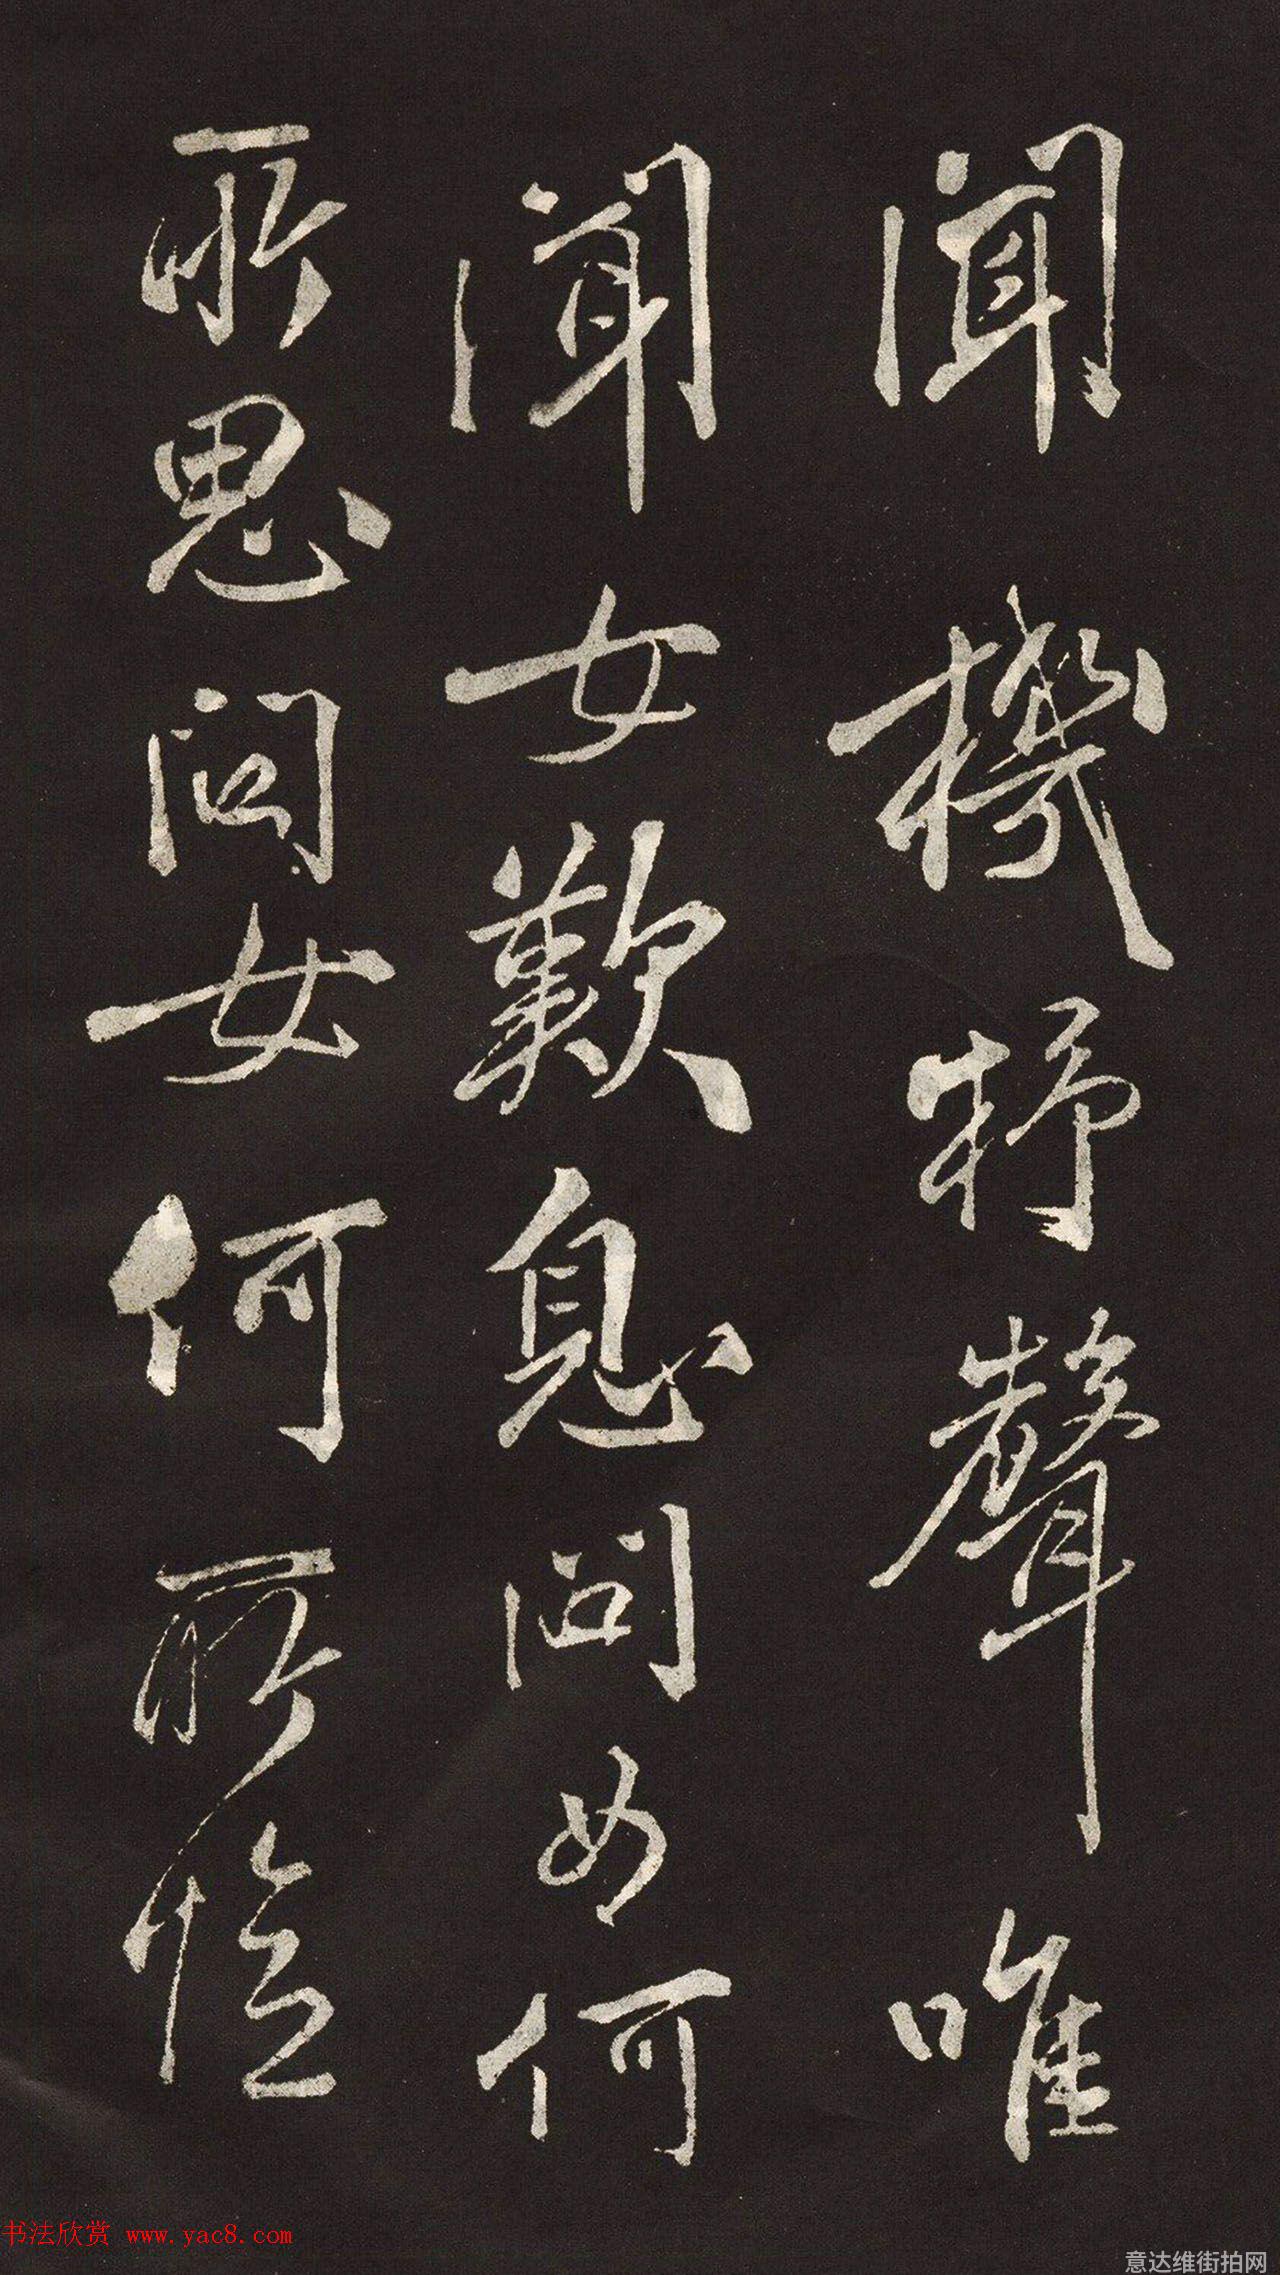 聞機杼聲唯
聞女歎息問女何
所思問女何所憶
书法欣赏 www.yac8.com
意达维街拍网